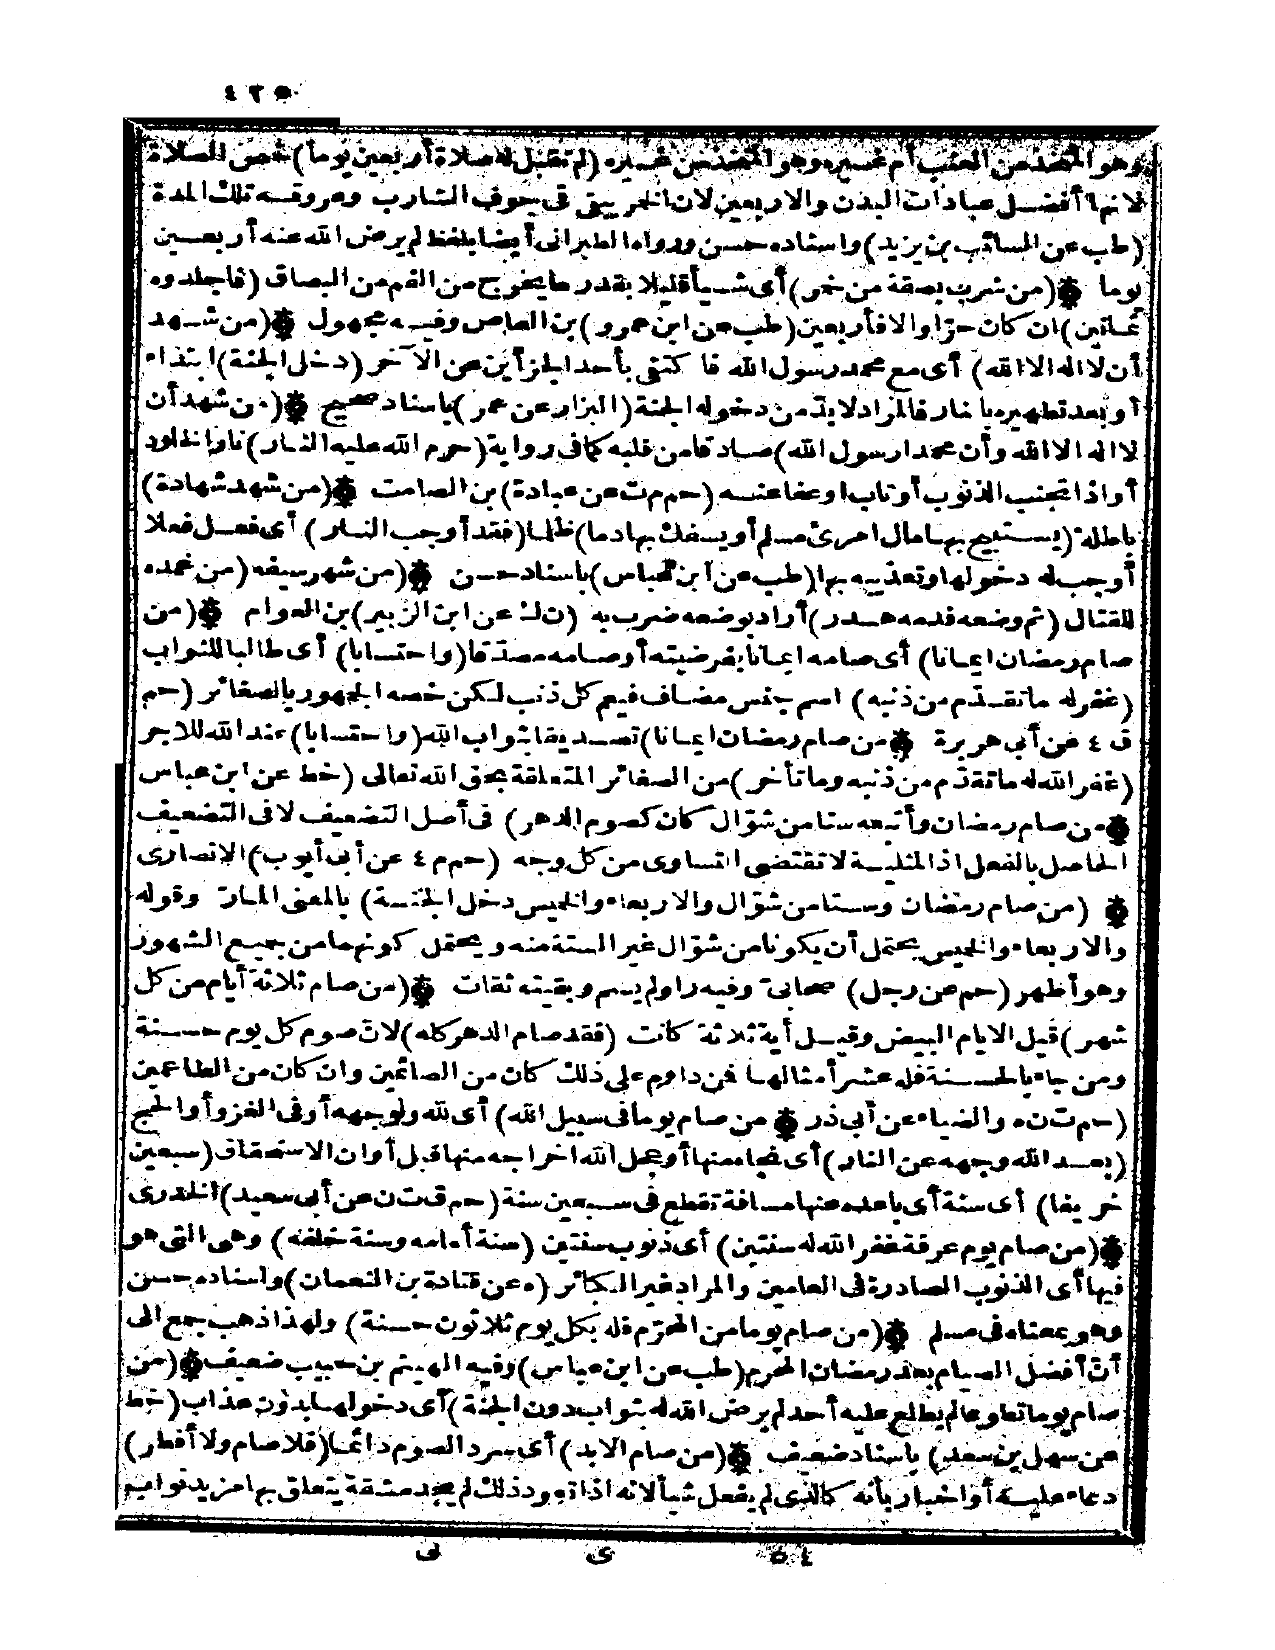 ٤٢٥
وهو المتخذ من العنب أم غيره وهو المتخذ من غيره (لم تقبل له صلاة أربعين يوما) خص الصلاة
لانها أفضل عبادات البدن والاربعين لان الخمر يبقى فى جوف الشارب وعروقه تلك المدة
(طب عن السائب بن يزيد) واسناده حسن ورواه الطبرانى أيضا بلفظ لم يرض الله عنه أربعين
يوما ﴿(من شرب بصقة من خمر) أى شيأ قليلا بقدر ما يخرج من الفم من البصاق (فاجلدوه
ثمانين) ان كان حرّا والا فأربعين (طب عن ابن عمرو) بن العاص وفيه مجهول ﴿(من شهد
أن لا اله الا الله) أى مع محمد رسول الله فاكتفى بأحد الجزأين عن الآخر (دخل الجنة) ابتداء
أو بعد تطهيره بالنار فالمراد لا بدّ من دخوله الجنة (البزار عن عمر) باسناد صحيح ﴿(من شهد أن
لا اله الا الله وأن محمدا رسول الله) صادقا من قلبه كما فى رواية (حرم الله عليه النار) نار الخلود
أو اذا تجنب الذنوب أو تاب أو عفا عنه (حم م ت عن عبادة) بن الصامت ﴿(من شهد شهادة)
باطلة (يستبيح بها مال امرئ مسلم أو يسفك بها دما) ظلما (فقد أوجب النار) أى فعل فعلا
أوجب له دخولها وتعذيبه بها (طب عن ابن عباس) باسناد حسن ﴿(من شهر سيفه) من غمده
للقتال (ثم وضعه فدمه هدر) أراد بوضعه ضرب به (ن ك عن ابن الزبير) بن العوام ﴿(من
صام رمضان ايمانا) أى صامه ايمانا بفرضيته أو صامه مصدّقا (واحتسابا) أى طالبا للثواب
(غفر له ما تقدّم من ذنبه) اسم جنس مضاف فيعم كل ذنب لكن خصه الجمهور بالصغائر (حم
ق ٤ عن أبى هريرة ﴿من صام رمضان ايمانا) تصديقا بثواب الله (واحتسابا) عند الله للاجر
(غفر الله له ما تقدّم من ذنبه وما تأخر) من الصغائر المتعلقة بحق الله تعالى (خط عن ابن عباس
﴿من صام رمضان وأتبعه ستا من شوّال كان كصوم الدهر) فى أصل التضعيف لا فى التضعيف
الحاصل بالفعل اذ المثلية لا تقتضى التساوى من كل وجه (حم م ٤ عن أبى أيوب) الانصارى
﴿ (من صام رمضان وستا من شوّال والاربعاء والخميس دخل الجنة) بالمعنى المارّ وقوله
والاربعاء والخميس يحتمل أن يكونا من شوّال غير الستة منه ويحتمل كونهما من جميع الشهور
وهو أظهر (حم عن رجل) صحابىّ وفيه راو لم يسم وبقيته ثقات ﴿(من صام ثلاثة أيام من كل
شهر) قيل الايام البيض وقيل أية ثلاثة كانت (فقد صام الدهر كله) لانّ صوم كل يوم حسنة
ومن جاء بالحسنة فله عشر أمثالها فمن داوم على ذلك كان من الصائمين وان كان من الطاعمين
(حم ت ن ه والضياء عن أبى ذر ﴿ من صام يوما فى سبيل الله) أى لله ولوجهه أو فى الغزو أو الحج
(بعد الله وجهه عن النار) أى نجاه منها أو عجل الله اخراجه منها قبل أوان الاستحقاق (سبعين
خريفا) أى سنة أى باعده عنها مسافة تقطع فى سبعين سنة (حم ق ت ن عن أبى سعيد) الخدرى
﴿(من صام يوم عرفة غفر الله له سنتين) أى ذنوب سنتين (سنة أمامه وسنة خلفه) وهى التى هو
فيها أى الذنوب الصادرة فى العامين والمراد غير الكبائر (ه عن قتادة بن النعمان) واسناده حسن
وهو بمعناه فى مسلم ﴿(من صام يوما من المحرّم فله بكل يوم ثلاثون حسنة) ولهذا ذهب جمع الى
أنّ أفضل الصيام بعد رمضان المحرم (طب عن ابن عباس) وفيه الهيثم بن حبيب ضعيف ﴿(من
صام يوما تطوعا لم يطلع عليه أحد لم يرض الله له بثواب دون الجنة) أى دخولها بدون عذاب (خط
عن سهل بن سعد) باسناد ضعيف ﴿(من صام الابد) أى سرد الصوم دائما (فلا صام ولا أفطر)
دعاء عليه أو اخبار بأنه كالذى لم يفعل شيأ لانه اذا تعود ذلك لم يجد مشقة يتعلق بها مزيد ثواب
٥٤ ى لى